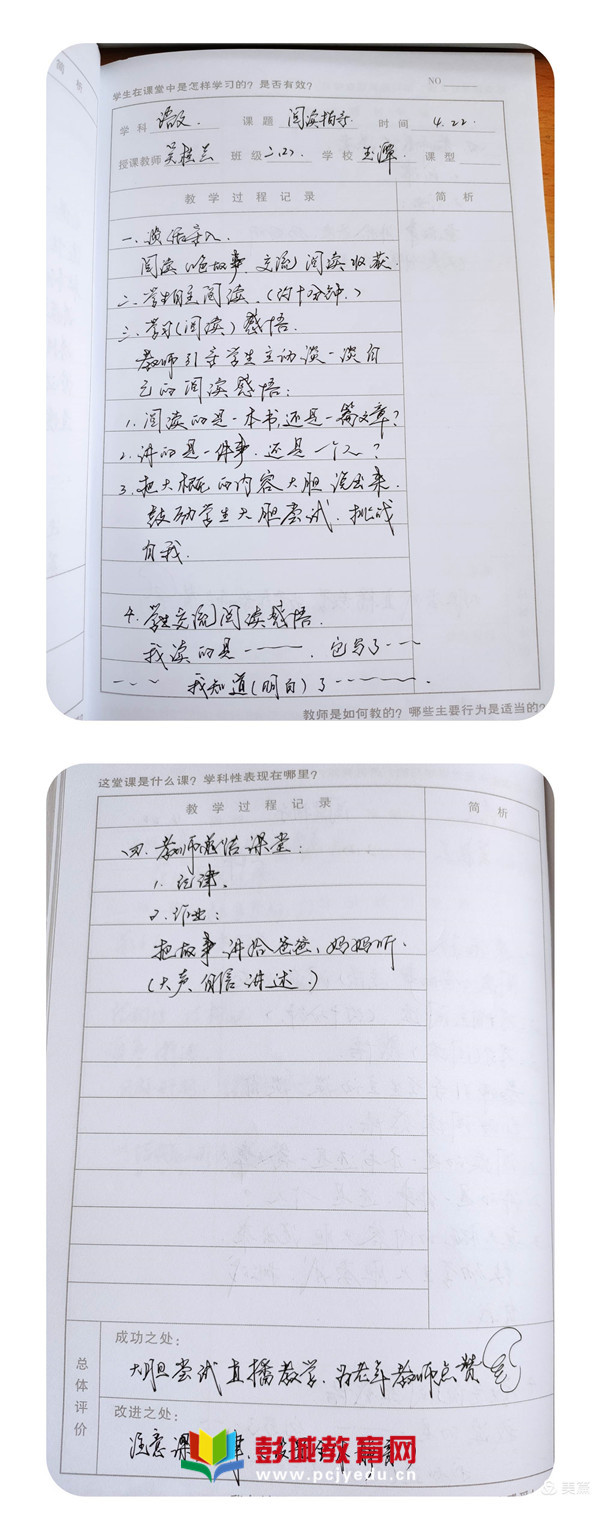 学生在课堂中是怎样学习的？是否有效？ NO
学科 语文. 课题 阅读指导 时间 4.22.
授课教师 吴桂兰 班级 二(2). 学校 玉潭. 课型
教学过程记录 简析
一、谈话导入.
阅读 故事. 交流阅读收获.
二、学生自主阅读.(约十分钟.)
三、学习(阅读)感悟.
教师引导学生主动谈一谈自
己的阅读感悟：
1.阅读的是一本书,还是一篇文章？
2.讲的是一件事.还是一个人？
3.把大概的内容大胆说出来.
鼓励学生大胆尝试.挑战
自我.
4.学生交流阅读感悟.
我读的是——.它写了——
——我知道(明白)了——.
教师是如何教的？哪些主要行为是适当的？
这堂课是什么课？学科性表现在哪里？
教学过程记录 简析
四.教师总结课堂：
1.纪律.
2.作业：
把故事讲给爸爸、妈妈听.
(大声 自信 讲述.)
总体评价
成功之处：
大胆尝试直播教学.为老年教师点赞
改进之处：
注意课
彭城教育网
www.pcjyedu.cn
美篇